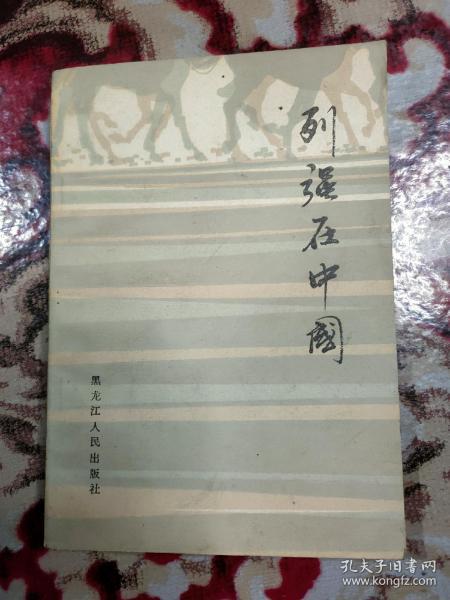 列强在中國
黑龙江人民出版社
孔夫子旧书网
www.kongfz.com